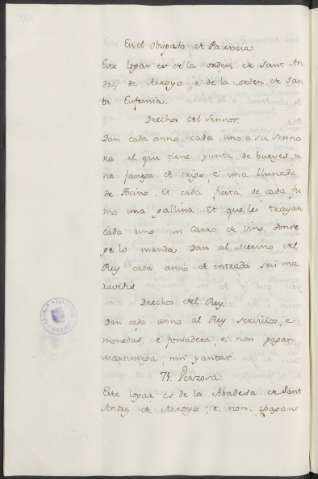 En el obispado de Palencia
Este logar es de la orden de Sant An
dres de Arroyo e de la orden de San
ta Eufemia.
Drechos del Sennor.
Dan cada anno cada uno a su senno
ra el que tiene yunta de bueyes, u
na fanega de trigo e una
de tocino. Et cada fuera de cada fu
mo una gallina. Et que les trayan
cada uno un carro de lino donde
ge lo manda. Dan al merino del
Rey cada anno de entrada seis ma
ravedis
Drechos del Rey.
Dan cada anno al Rey servicios, e
monedas, e fonsadera, e non pagan
martiniega, nin yantar.
Perazora
Este logar es de la Abadesa de Sant
Andres de Arroyo, e non pagan